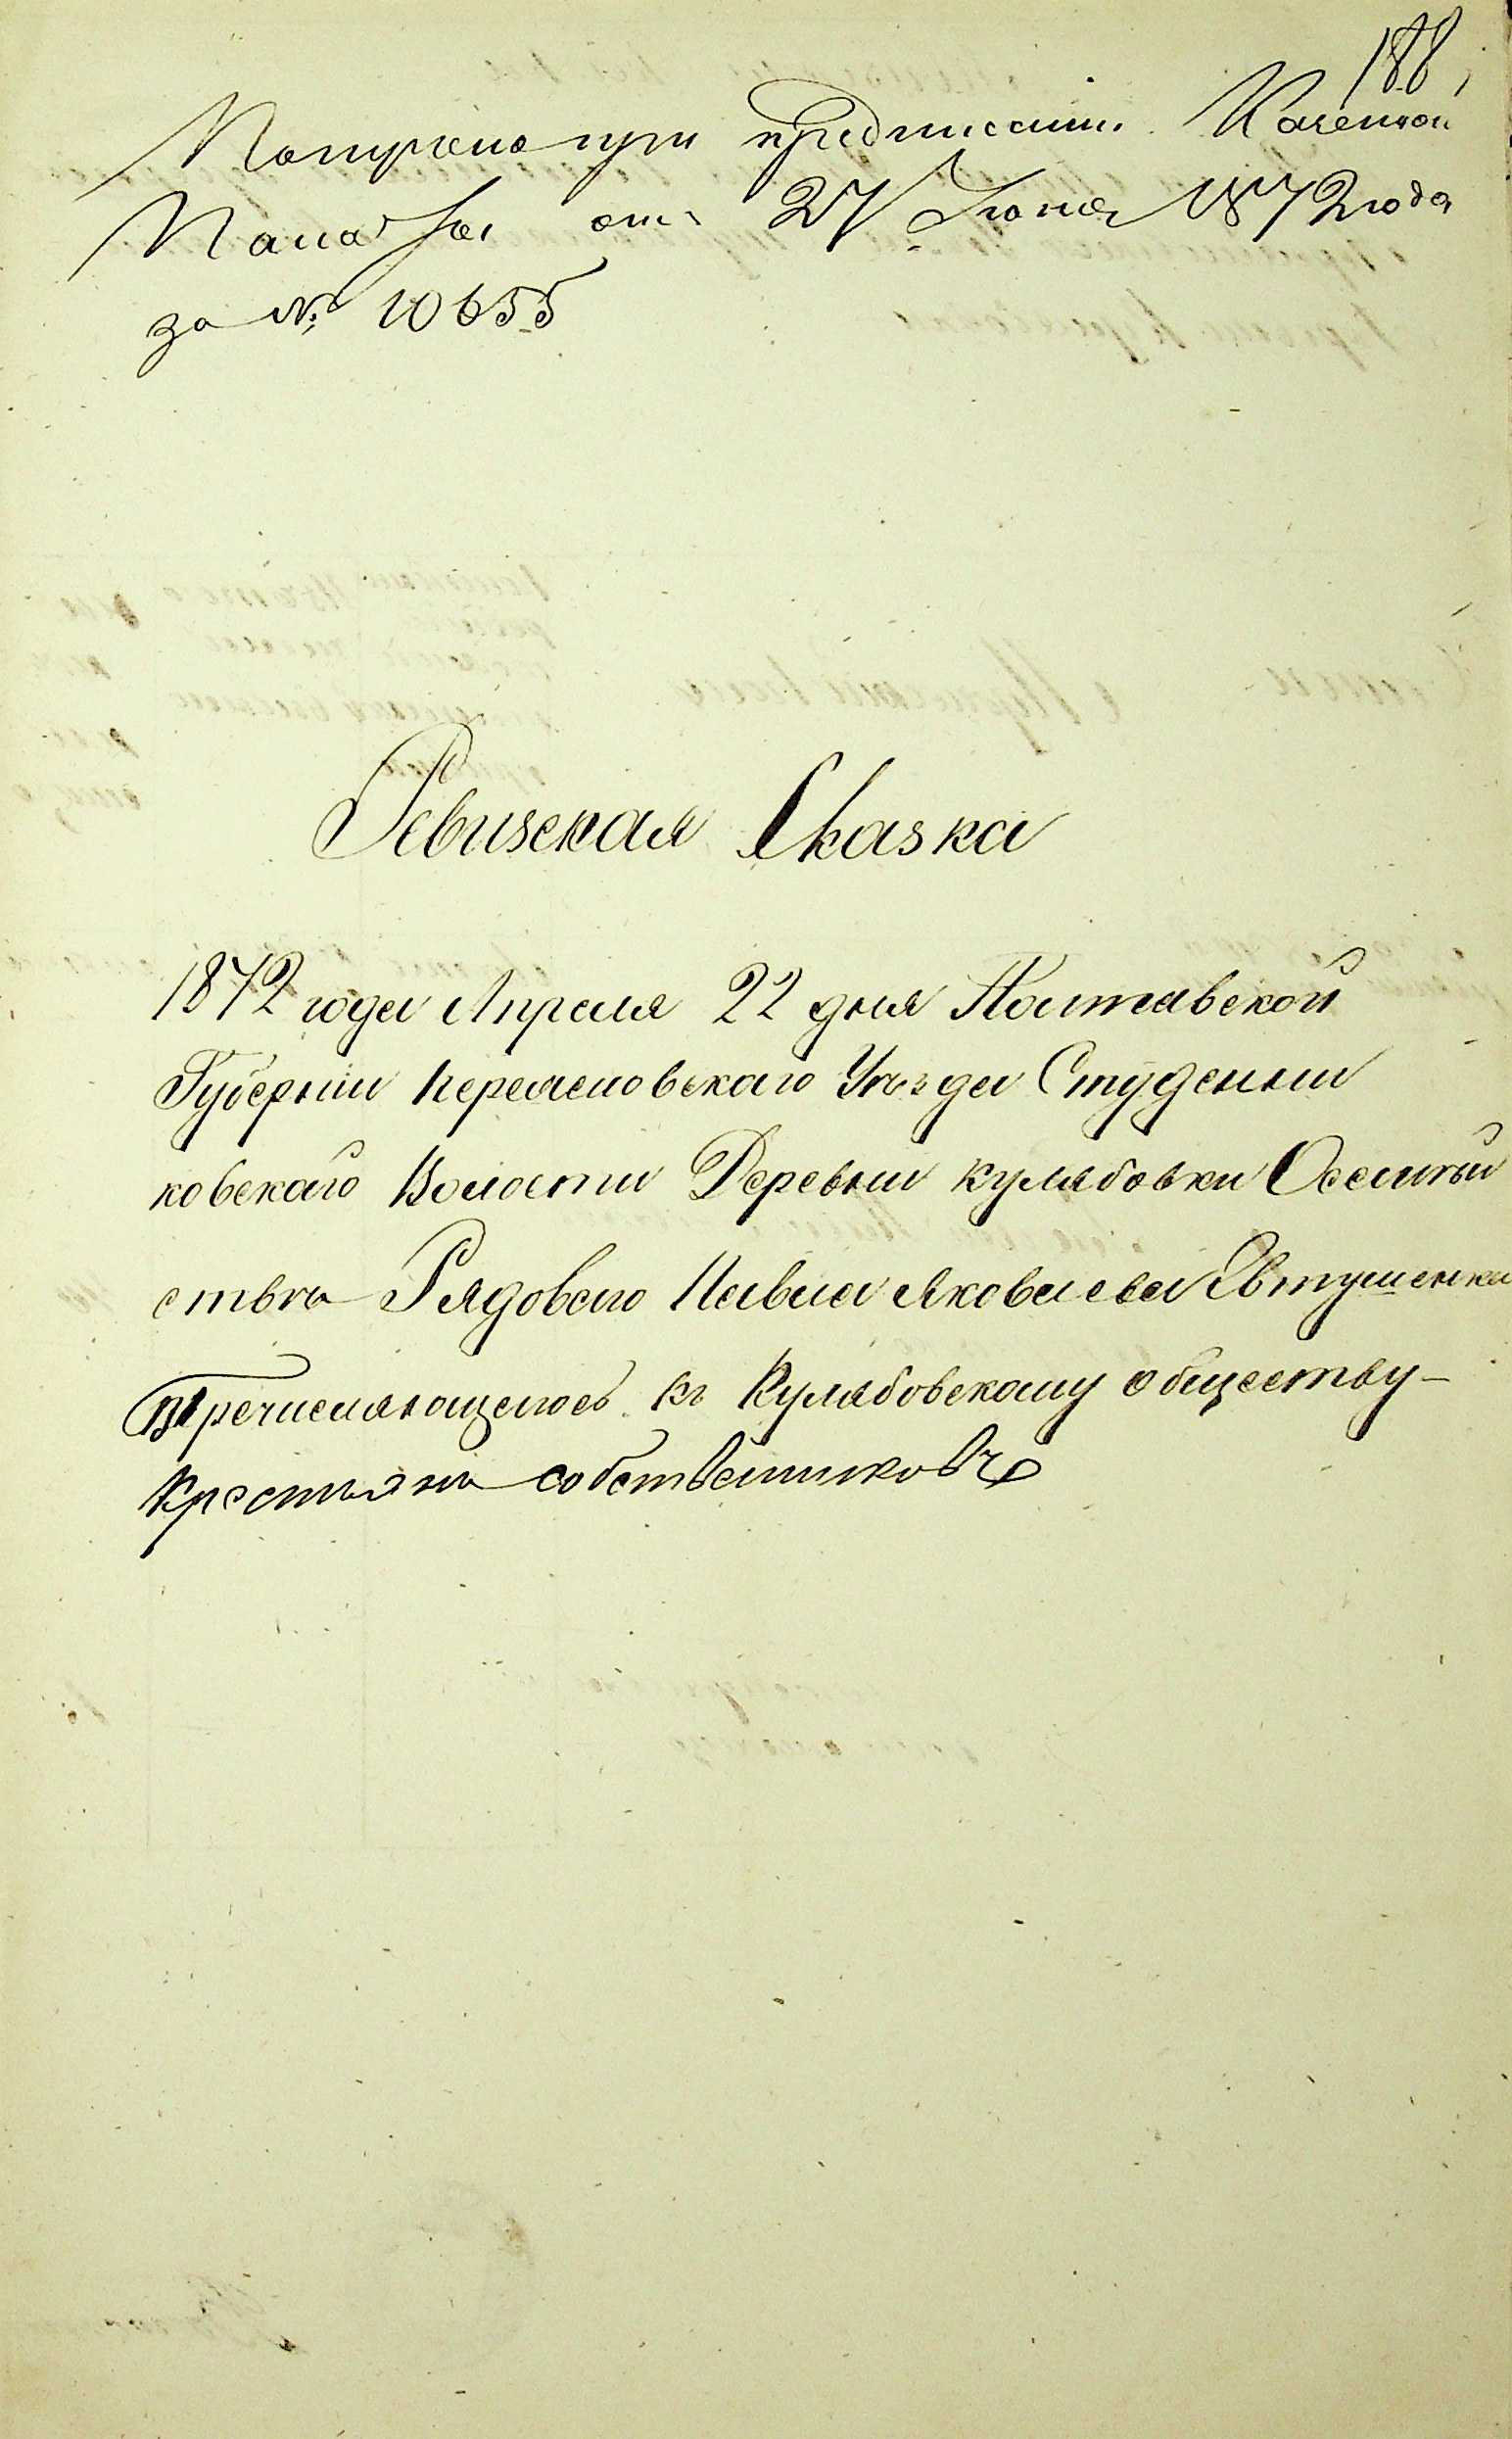 188
Получено при предписании Казенной
Палаты отъ 27 Іюня 1872 года
за № 10655
Ревизская Сказка
1872 года Апреля 22 дня Полтавской
Губернии Переясловскаго Уезда Студенни
ковскаго Волости Деревни Кулябовки
ства Рядоваго Павла Яковлева Евтушенка
перечисляющегось къ Кулябовскому обществу
Крестьянъ собственниковъ